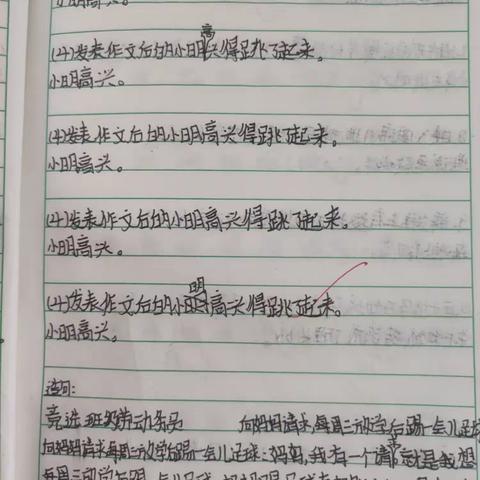 小明高兴。
(4)发表作文后的小明高兴得跳了起来。
小明高兴。
(4)发表作文后的小明高兴得跳了起来。
小明高兴。
(4)发表作文后的小明高兴得跳了起来。
小明高兴。
(4)发表作文后的小明高兴得跳了起来。
小明高兴。
竞选班级劳动委员 向妈妈请求,每周三放学后踢一会儿足球
向妈妈请求每周三放学后踢一会儿足球:妈妈,我有一个请求就是我想
每周三放学后踢一会儿足球